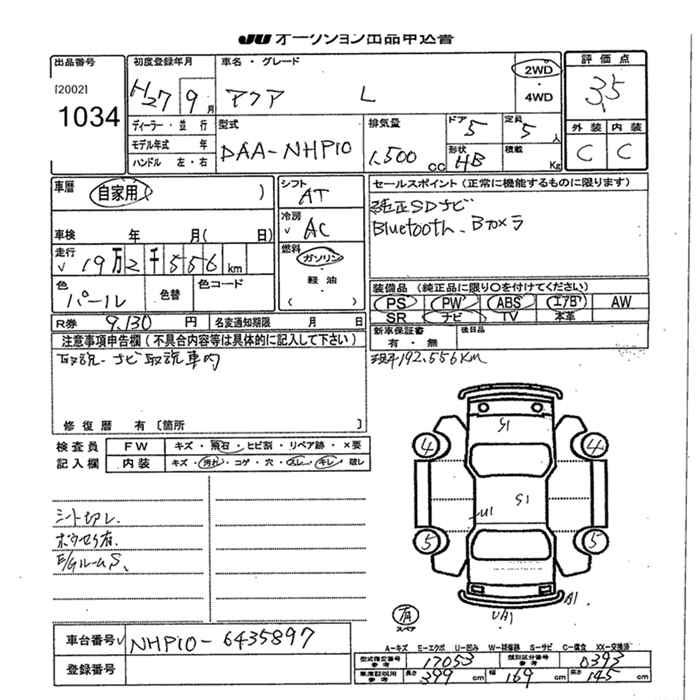 JU オークション出品申込書
出品番号
[2002]
1034
初度登録年月
H27 9月
車名・グレード
アクア L
2WD
・
4WD
評価点
3.5
外装 内装
C C
ディーラー・並行
モデル年式 年
ハンドル 左・右
型式
DAA-NHP10
排気量
1,500 CC
ドア 5
形状 HB
定員 5人
積載 Kg
車歴 自家用 ( )
車検 年 月 ( 日)
走行 19万2千556km
色 パール
色替
色コード
R券 9,130円
名変通知期限 月 日
シフト AT
冷房 AC
燃料 ガソリン
・
軽油
( )
セールスポイント (正常に機能するものに限ります)
純正SDナビ
Bluetooth、Bカメラ
装備品 (純正品に限り○を付けてください)
PS PW ABS エアB AW
SR ナビ TV 本革
新車保証書
有・無
後日品
現子192,556KM
注意事項申告欄(不具合内容等は具体的に記入して下さい)
取説、ナビ取説車内
修復歴 有 [箇所 ]
検査員
記入欄
FW キズ・飛石・ヒビ割・リペア跡・×要
内装 キズ・汚れ・コゲ・穴・スレ・キレ・破レ
シート切レ
E/GルームS、
S1
4 4
S1
U1
5 5
A1
UA1
スペア
車台番号 NHP10-6435897
登録番号
A-キズ E-エクボ U-凹み W-補修跡 S-サビ C-腐食 XX-交換済
型式指定番号
参考
17053
類別区分番号
参考
0393
車庫証取用
参考
長さ 399cm 幅 169cm 高さ 145cm